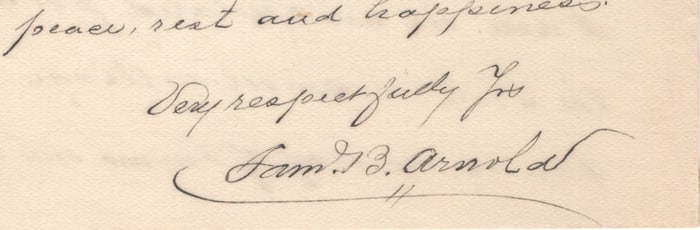 peace, rest and happiness.
Very respectfully Yrs
Saml. B. Arnold